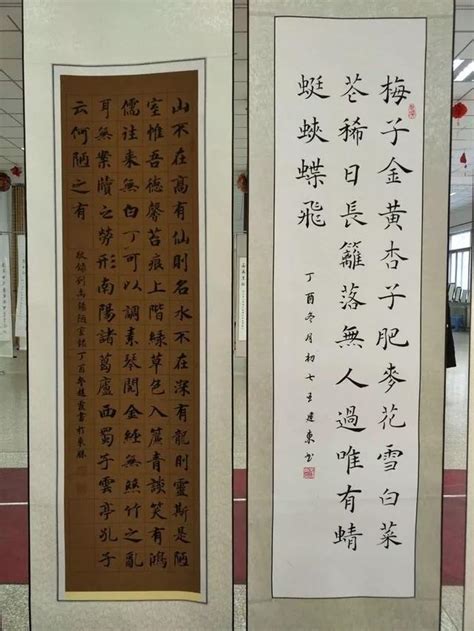 梅子金黃杏子肥麥花雪白菜
花稀日長籬落無人過唯有蜻
蜓蛺蝶飛
丁酉冬月初七王建東书
山不在高有仙則名水不在深有龍則靈斯是陋
室惟吾德馨苔痕上階綠草色入簾青談笑有鴻
儒往来無白丁可以調素琴閱金經無絲竹之亂
耳無案牘之勞形南陽諸葛廬西蜀子雲亭孔子
云何陋之有
敬錄劉禹錫陋室銘丁酉冬趙霞書於東